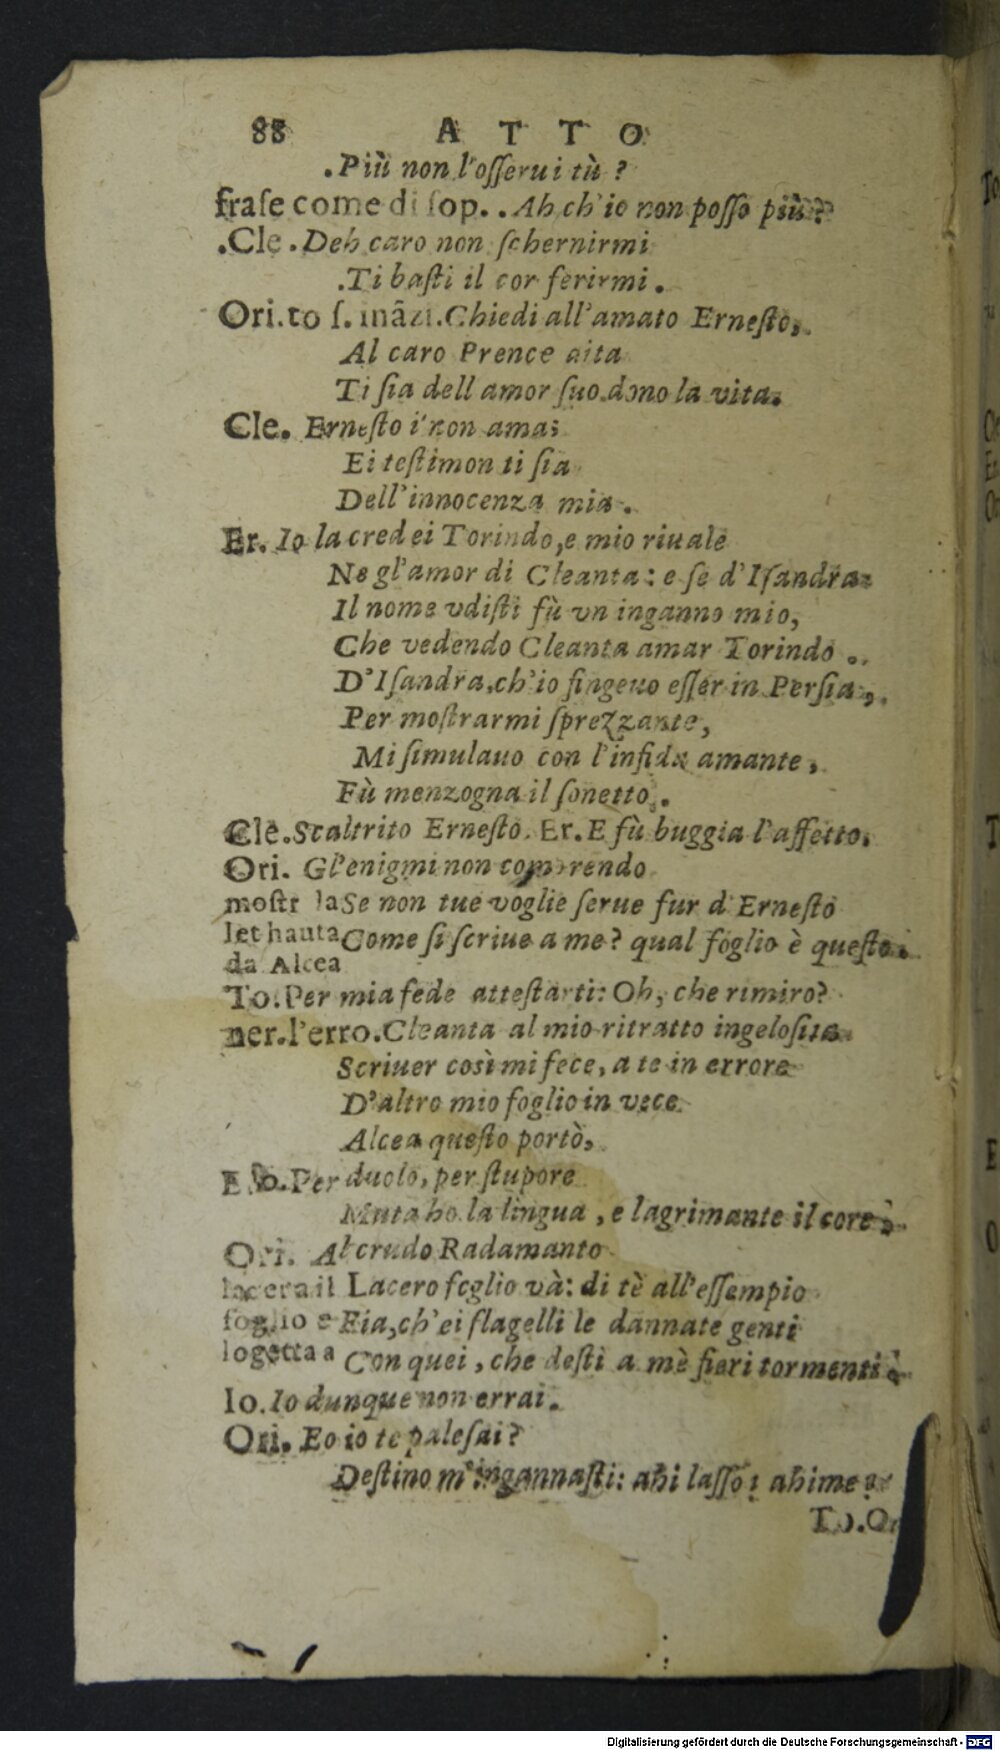 88 ATTO
.Più non l'osserui tù ?
frase come di sop. . Ah ch'io non posso più?
.Cle .Deh caro non schernirmi
.Ti basti il cor ferirmi .
Ori.to s. inãzi.Chiedi all'amato Ernesto,
Al caro Prence aita
Ti sia dell amor suo dono la vita.
Cle. Ernesto i' non amai
Ei testimon ti sia
Dell'innocenza mia .
Er. Io la credei Torindo,e mio riuale
Ne gl'amor di Cleanta: e se d'Isandra
Il nome vdisti fù vn inganno mio,
Che vedendo Cleanta amar Torindo .
D'Isandra,ch'io fingeuo esser in Persia ,
Per mostrarmi sprezzante,
Mi simulauo con l'infida amante ,
Fù menzogna il sonetto .
Cle.Scaltrito Ernesto. Er.E fù buggia l'affetto.
Ori. Gl'enigmi non comprendo
mostr la Se non tue voglie serue fur d'Ernesto
let hauta Come si scriue a me? qual foglio è questo.
da Alcea
To.Per mia fede attestarti: Oh, che rimiro?
ner.l'erro.Cleanta al mio ritratto ingelosita
Scriuer così mi fece, a te in errore
D'altro mio foglio in vece
Alcea questo portò,
Per duolo, per stupore
Muta ho la lingua , e lagrimante il core
Ori. Al crudo Radamanto
lacera il Lacero foglio và: di tè all'essempio
foglio e Fia,ch'ei flagelli le dannate genti
logetta a Con quei , che desti a mè fieri tormenti
Io.Io dunque non errai.
Ori. Eo io te palesai?
Destino m'ingannasti: ahi lasso ; ahime
To.O
Digitalisierung gefördert durch die Deutsche Forschungsgemeinschaft - DFG